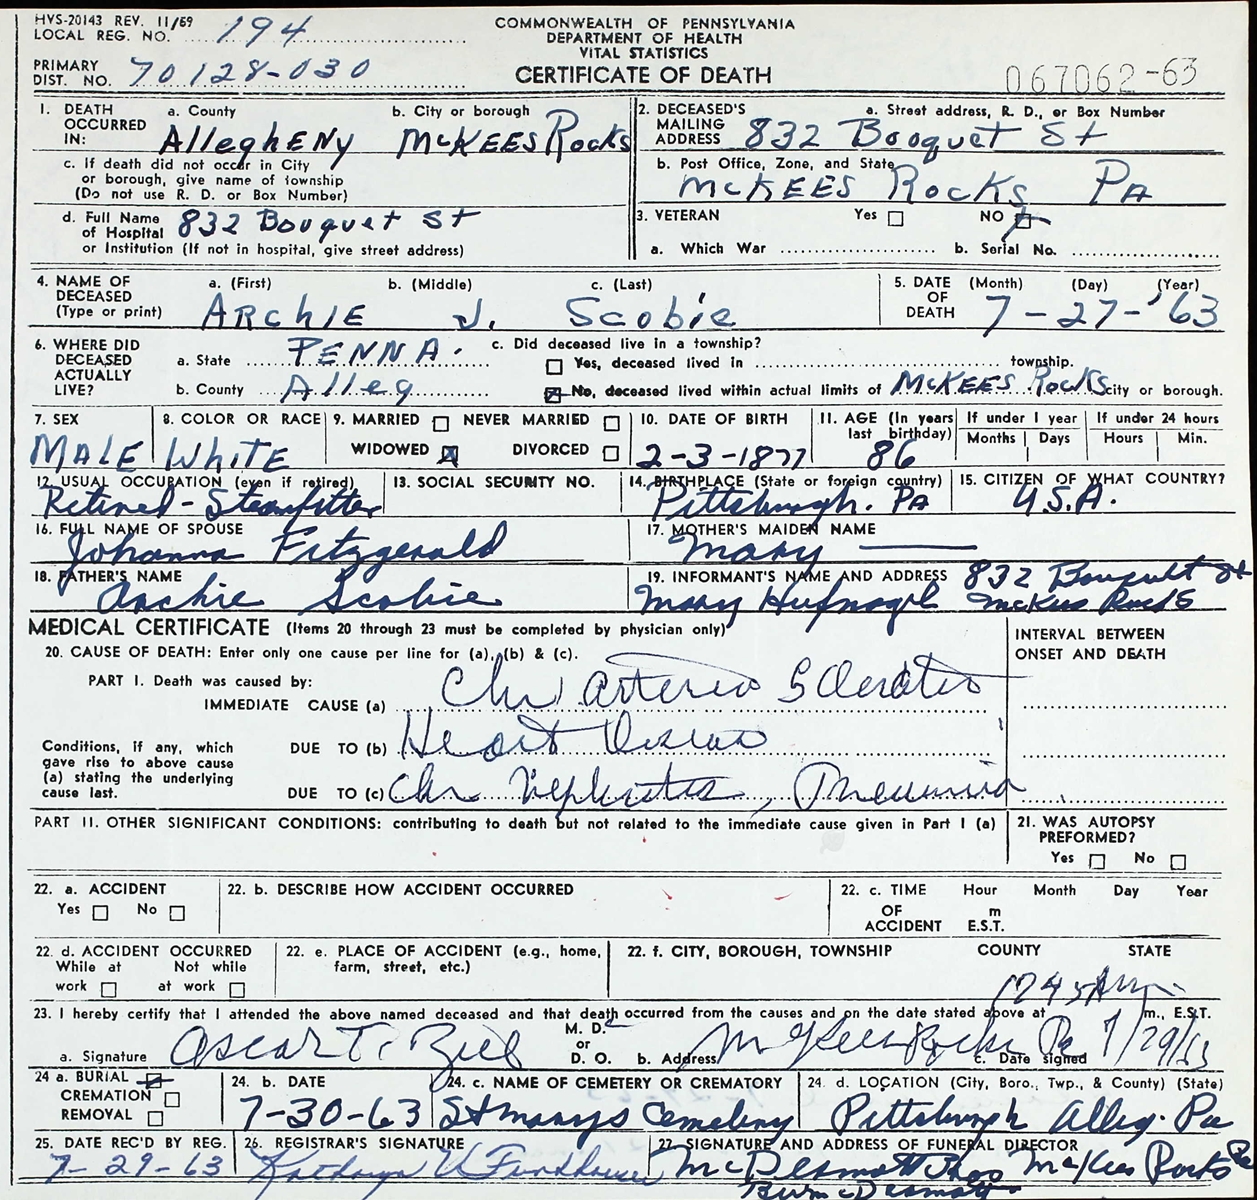 HVS-20143 REV. 11/69
LOCAL REG. NO. 194
PRIMARY DIST. NO. 70128-030
COMMONWEALTH OF PENNSYLVANIA
DEPARTMENT OF HEALTH
VITAL STATISTICS
CERTIFICATE OF DEATH
067062-63
1. DEATH OCCURRED IN: a. County Allegheny b. City or borough McKees Rocks
c. If death did not occur in City or borough, give name of township (Do not use R. D. or Box Number)
d. Full Name of Hospital 832 Bouquet St or Institution (If not in hospital, give street address)
2. DECEASED'S MAILING ADDRESS a. Street address, R. D., or Box Number 832 Booquet St
b. Post Office, Zone, and State McKees Rocks Pa
3. VETERAN Yes NO
a. Which War b. Serial No.
4. NAME OF DECEASED (Type or print) a. (First) b. (Middle) c. (Last)
Archie J. Scobie
5. DATE OF DEATH (Month) (Day) (Year)
7-27-'63
6. WHERE DID DECEASED ACTUALLY LIVE? a. State PENNA.
b. County Alleg
c. Did deceased live in a township?
Yes, deceased lived in township.
No, deceased lived within actual limits of McKees Rocks city or borough.
7. SEX MALE
8. COLOR OR RACE White
9. MARRIED NEVER MARRIED
WIDOWED DIVORCED
10. DATE OF BIRTH 2-3-1877
11. AGE (In years last birthday) 86
If under 1 year Months Days
If under 24 hours Hours Min.
12. USUAL OCCUPATION (even if retired) Retired - Steamfitter
13. SOCIAL SECURITY NO.
14. BIRTHPLACE (State or foreign country) Pittsburgh. PA
15. CITIZEN OF WHAT COUNTRY? U.S.A.
16. FULL NAME OF SPOUSE Johanna Fitzgerald
17. MOTHER'S MAIDEN NAME Mary
18. FATHER'S NAME Archie Scobie
19. INFORMANT'S NAME AND ADDRESS 832 St
Mary Hufnagel McKees Rocks
MEDICAL CERTIFICATE (Items 20 through 23 must be completed by physician only)
INTERVAL BETWEEN ONSET AND DEATH
20. CAUSE OF DEATH: Enter only one cause per line for (a), (b) & (c).
PART I. Death was caused by:
IMMEDIATE CAUSE (a) Chr Arterio Sclerotic
Conditions, if any, which gave rise to above cause (a) stating the underlying cause last.
DUE TO (b) Heart Disease
DUE TO (c) Chr Nephritis, Pneumonia
PART II. OTHER SIGNIFICANT CONDITIONS: contributing to death but not related to the immediate cause given in Part I (a)
21. WAS AUTOPSY PREFORMED?
Yes No
22. a. ACCIDENT
Yes No
22. b. DESCRIBE HOW ACCIDENT OCCURRED
22. c. TIME OF ACCIDENT Hour Month Day Year
m E.S.T.
22. d. ACCIDENT OCCURRED
While at work Not while at work
22. e. PLACE OF ACCIDENT (e.g., home, farm, street, etc.)
22. f. CITY, BOROUGH, TOWNSHIP COUNTY STATE
23. I hereby certify that I attended the above named deceased and that death occurred from the causes and on the date stated above at 1245 Am m., E.S.T.
a. Signature Oscar T. M. D. or D. O. b. Address McKees Rocks Pa c. Date signed 7/29/63
24 a. BURIAL
CREMATION
REMOVAL
24. b. DATE 7-30-63
24. c. NAME OF CEMETERY OR CREMATORY St Marys Cemetery
24. d. LOCATION (City, Boro., Twp., & County) (State)
Pittsburgh Alleg. Pa
25. DATE REC'D BY REG. 7-29-63
26. REGISTRAR'S SIGNATURE Kathryn
27. SIGNATURE AND ADDRESS OF FUNERAL DIRECTOR
McDermott Bros McKees Rocks Pa
McDermott